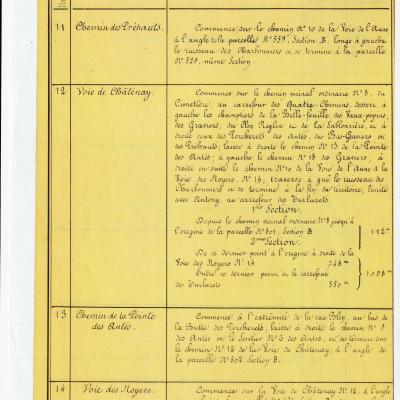 11 Chemin des Préhauts. Commence sur le chemin N° 10 de la Voie de l'Aure
à l'angle de la parcelle N° 559, Section B, longe à gauche
le ruisseau des Charbonniers et se termine à la parcelle
N° 525, même Section.
12 Voie de Châtenay. Commence sur le chemin vicinal ordinaire N° 8, du
Cimetière, au carrefour des Quatre-Chemins, dessert à
gauche les champtiers de la Belle-feuille des Vaux-pepins,
des Graviers, du Clos et de la Sablonnière, et à
droite ceux des Porcherets des Antes, des et des
Préhauts, laisse à droite le chemin N° 13 de la Pointe
des Antes, à gauche le chemin N° 18 des Graviers, à
droite ensuite le chemin N° 10 de la Voie de l'Aure et la
Voie des Noyers, N° 14, traverse à gué le ruisseau des
Charbonniers et se termine à la fin du territoire, limite
avec Antony, au carrefour des
1ère Section.
Depuis le chemin vicinal ordinaire N° 8 jusqu'à
l'origine de la parcelle N° 601, Section B
2ème Section.
De ce dernier point à l'origine à droite de la
Voie des Noyers N° 14 748 m
Entre ce dernier point et le carrefour
des 350 m
1098 m
13 Chemin de la Pointe
des Antes. Commence à l'extrémité de la rue au bas de
la Butte des Porcherets, laisse à droite le chemin N° 3
des Antes et le Sentier N° 5 des Antes, et se termine sur
le chemin N° 12 de la Voie de Châtenay, à l'angle de
la parcelle N° 602 Section B.
14 Voie des Noyers. Commence sur la Voie de Châtenay N° 12, à l'angle